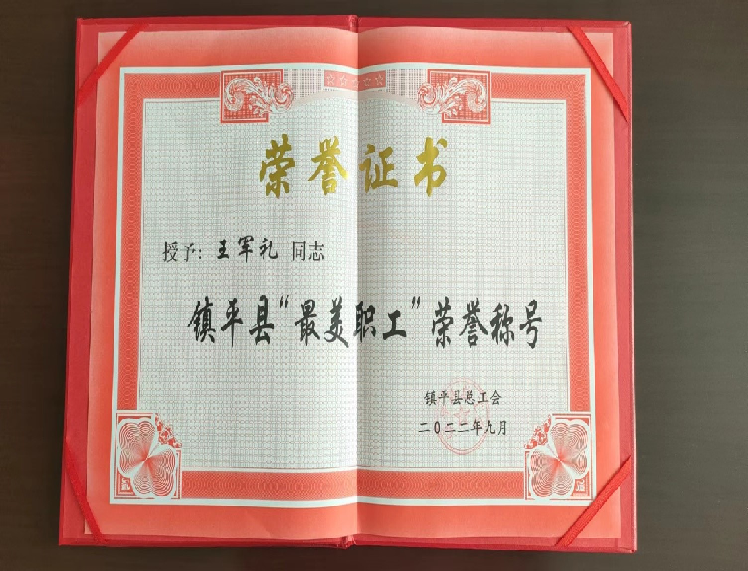 荣誉证书
授予：王军礼 同志
镇平县“最美职工”荣誉称号
镇平县总工会
二0二二年九月